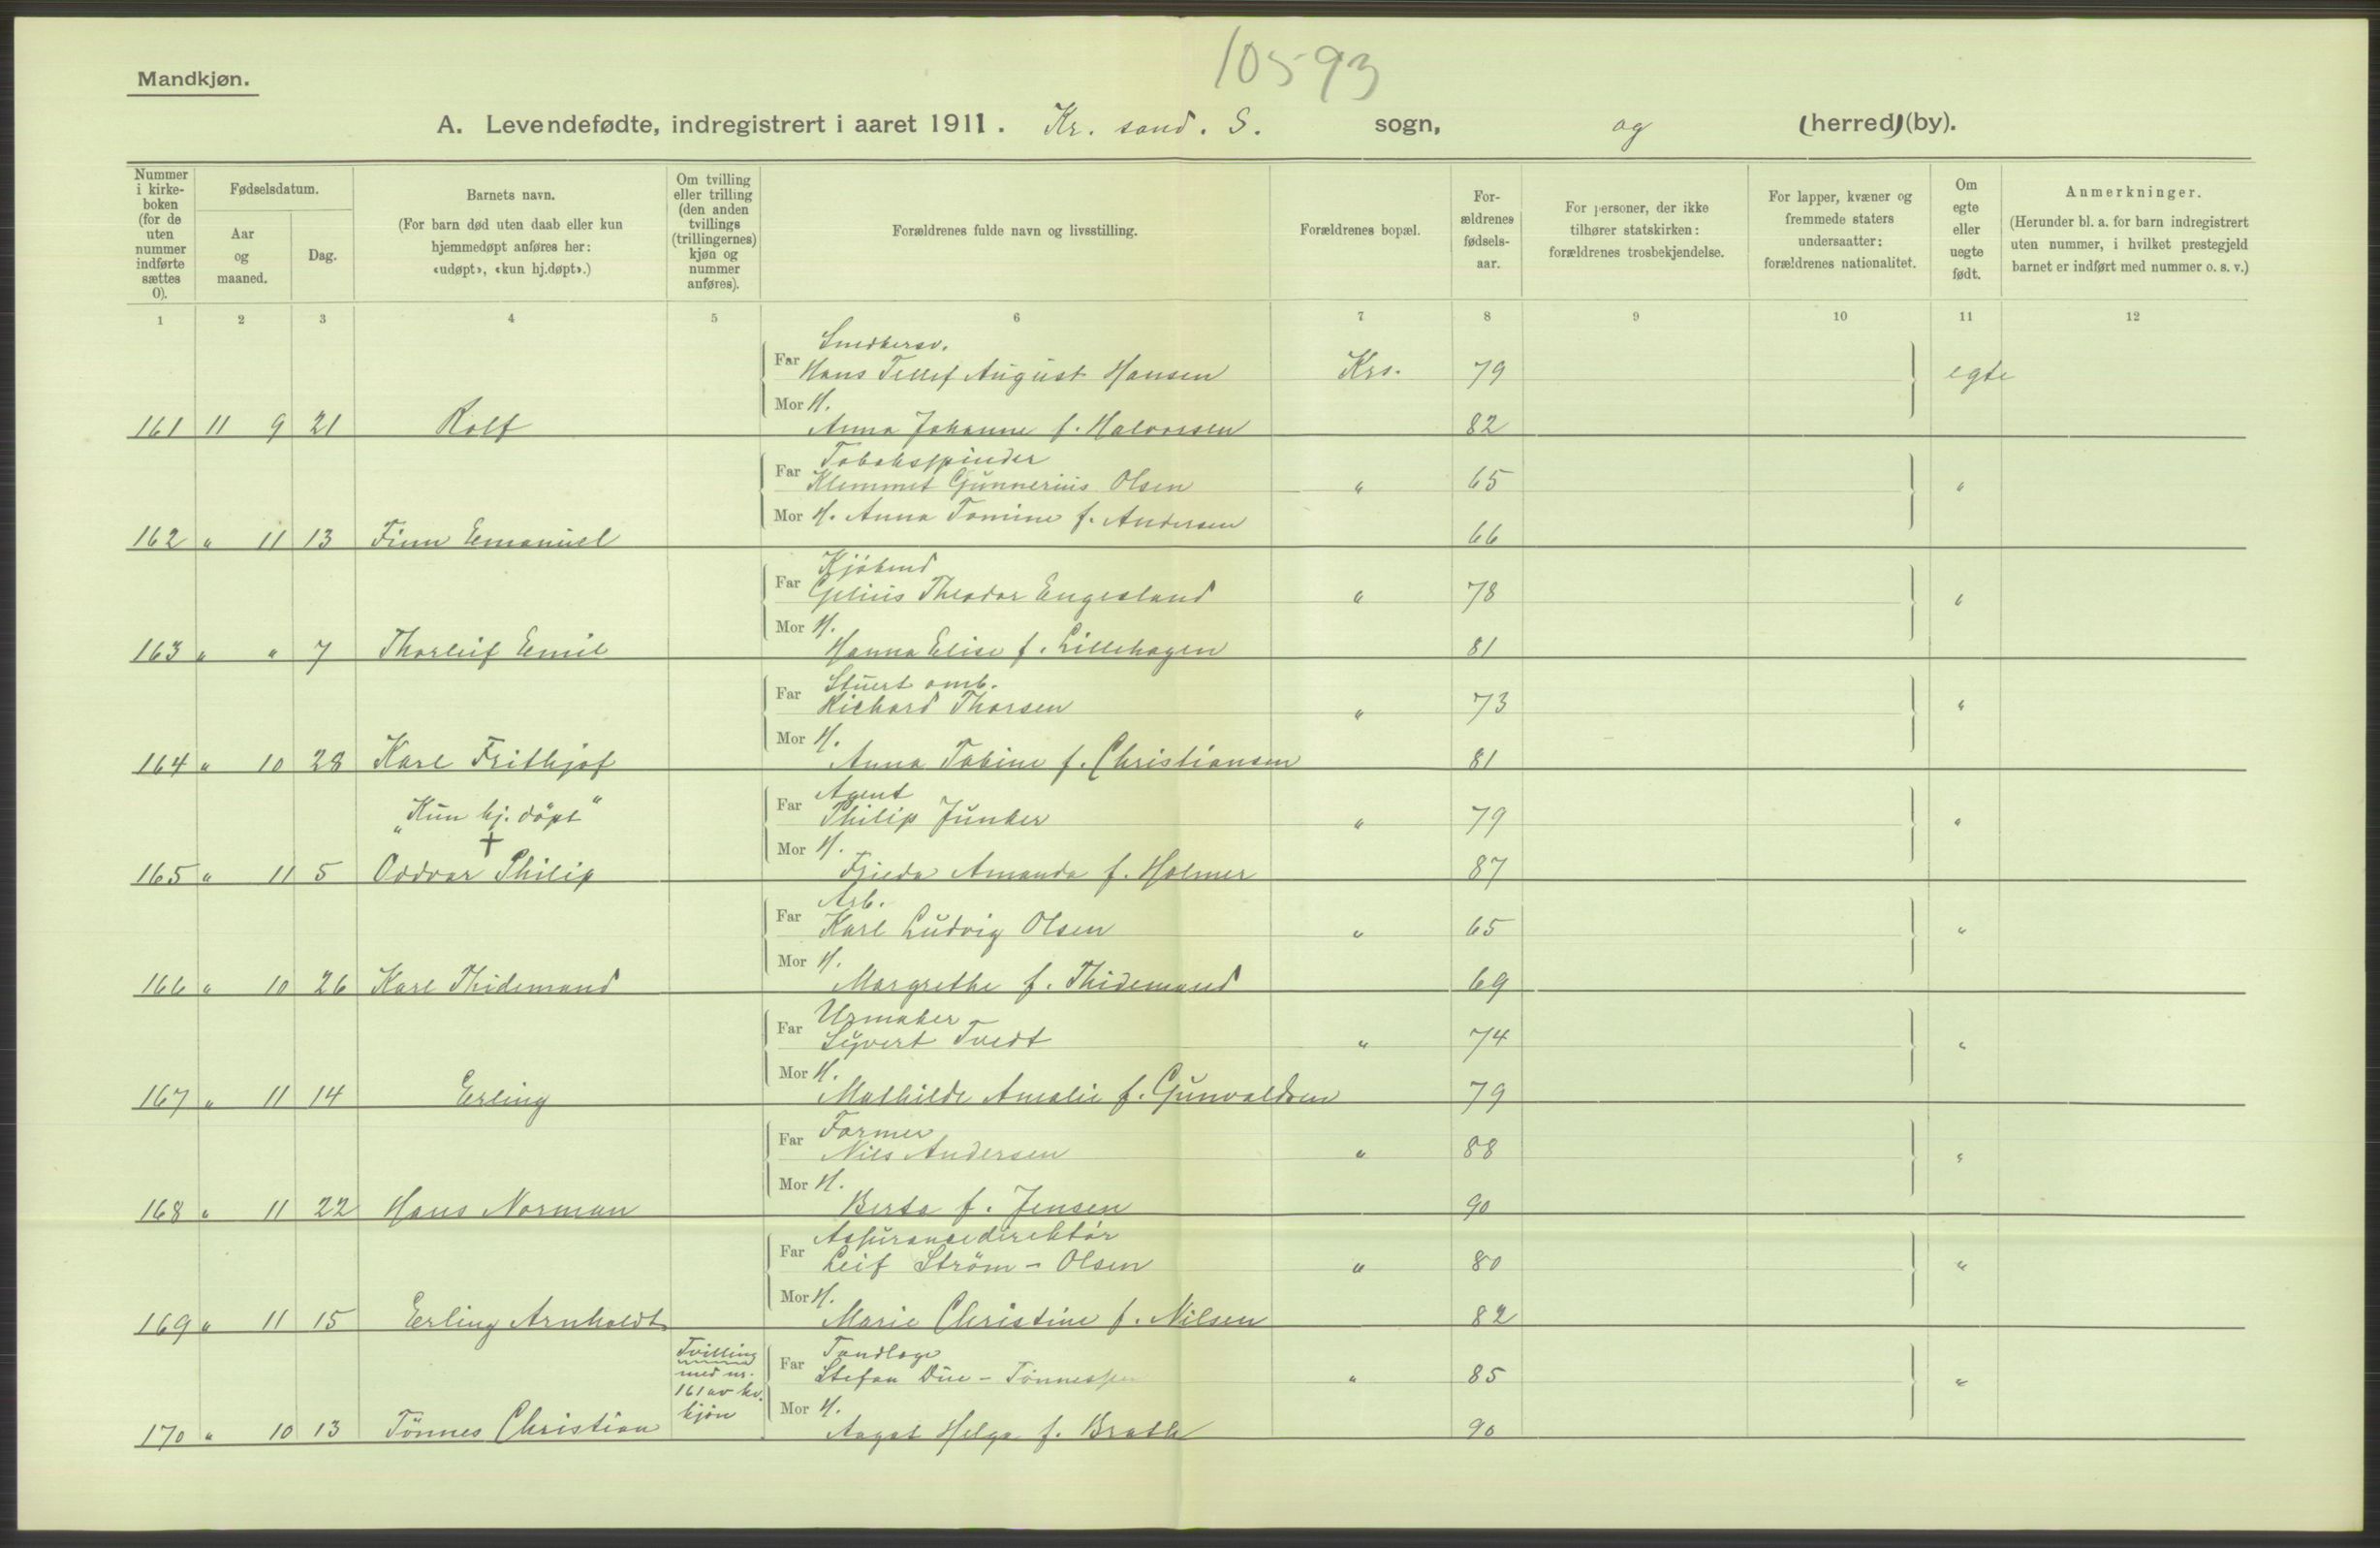 10593
Mandkjøn.
A. Levendefødte, indregistrert i aaret 1911. Kr. sand. S. sogn, og (herred)(by).
Nummer i kirke-boken (for de uten nummer indførte sættes 0).
Fødselsdatum.
Aar og maaned.
Dag.
Barnets navn.
(For barn død uten daab eller kun hjemmedøpt anføres her: «udøpt», «kun hj.døpt».)
Om tvilling eller trilling (den anden tvillings (trillingernes) kjøn og nummer anføres).
Forældrenes fulde navn og livsstilling.
Forældrenes bopæl.
For-ældrenes fødsels-aar.
For personer, der ikke tilhører statskirken: forældrenes trosbekjendelse.
For lapper, kvæner og fremmede staters undersaatter: forældrenes nationalitet.
Om egte eller uegte født.
Anmerkninger.
(Herunder bl. a. for barn indregistrert uten nummer, i hvilket prestegjeld barnet er indført med nummer o. s. v.)
1 2 3 4 5 6 7 8 9 10 11 12
Smedkersv.
Far Hans Tellef August Hansen Krs. 79 egte
Mor H.
161 11 9 21 Rolf Anna Johanne f. Halvorsen 82
Tobakspinder
Far Klemmet Gunnerius Olsen " 65 "
Mor H. Anna Tomine f. Andersen
162 " 11 13 Finn Emanuel 66
Kjöbmd
Far Gelius Theodor Engesland " 78 "
Mor H.
163 " " 7 Thorleif Emil Hanna Elise f. Lillehagen 81
Stuert omb.
Far Richard Thorsen " 73 "
Mor H.
164 " 10 28 Karl Frithjof Anna Tobine f. Christiansen 81
"Kun hj. döpt" Agent
Far Philip Junker " 79 "
+ Mor H.
165 " 11 5 Oddvar Philip Frieda Amanda f. Holmer 87
Arb.
Far Karl Ludvig Olsen " 65 "
Mor H.
166 " 10 26 Karl Thidemand Margrethe f. Thidemand 69
Urmaker
Far Syvert Tvedt " 74 "
Mor H.
167 " 11 14 Erling Mathilde Amalie f. Gunvaldsen 79
Former
Far Nils Andersen " 88 "
Mor H.
168 " 11 22 Hans Norman Berta f. Jensen 90
Assurancedirektör
Far Leif Ström - Olsen " 80 "
Mor H.
169 " 11 15 Erling Arnholdt Marie Christine f. Nilsen 82
Tvilling med nr. 161 av kv. kjön
Tandlæge
Far Stefan Due - Tönnessen " 85 "
Mor H.
170 " 10 13 Tönnes Christian Aagot Helga f. Bratli 90